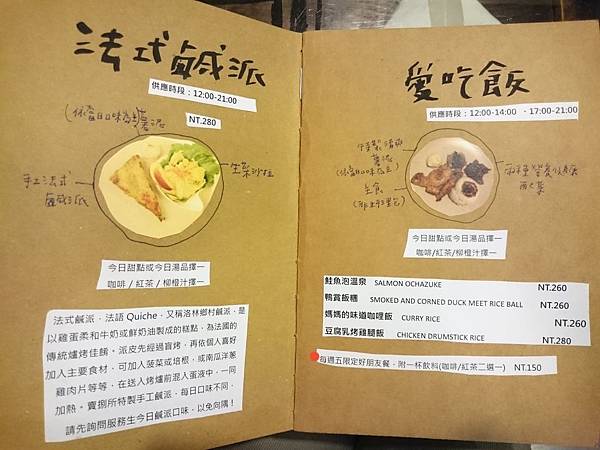 法式鹹派
供應時段：12:00-21:00
NT.280
(依當日口味為主)
薯泥
生菜沙拉
手工法式
鹹鹹派
今日甜點或今日湯品擇一
咖啡 / 紅茶 / 柳橙汁擇一
法式鹹派，法語 Quiche，又稱洛林鄉村鹹派，是
以雞蛋柔和牛奶或鮮奶油製成的糕點，為法國的
傳統爐烤佳餚。派皮先經過盲烤，再依個人喜好
加入主要食材，可加入菠菜或培根，或南瓜洋蔥
雞肉片等等，在送入烤爐前混入蛋液中，一同
加熱。賣捌所特製手工鹹派，每日口味不同，
請先詢問服務生今日鹹派口味，以免向隅！
愛吃飯
供應時段：12:00-14:00 、17:00-21:00
薯泥
(依當日口味為主)
主食
配菜
今日甜點或今日湯品擇一
咖啡/紅茶/柳橙汁擇一
鮭魚泡溫泉 SALMON OCHAZUKE NT.260
鴨賞飯糰 SMOKED AND CORNED DUCK MEET RICE BALL NT.260
媽媽的味道咖哩飯 CURRY RICE NT.260
豆腐乳烤雞腿飯 CHICKEN DRUMSTICK RICE NT.280
每週五限定好朋友餐，附一杯飲料(咖啡/紅茶二選一) NT.150